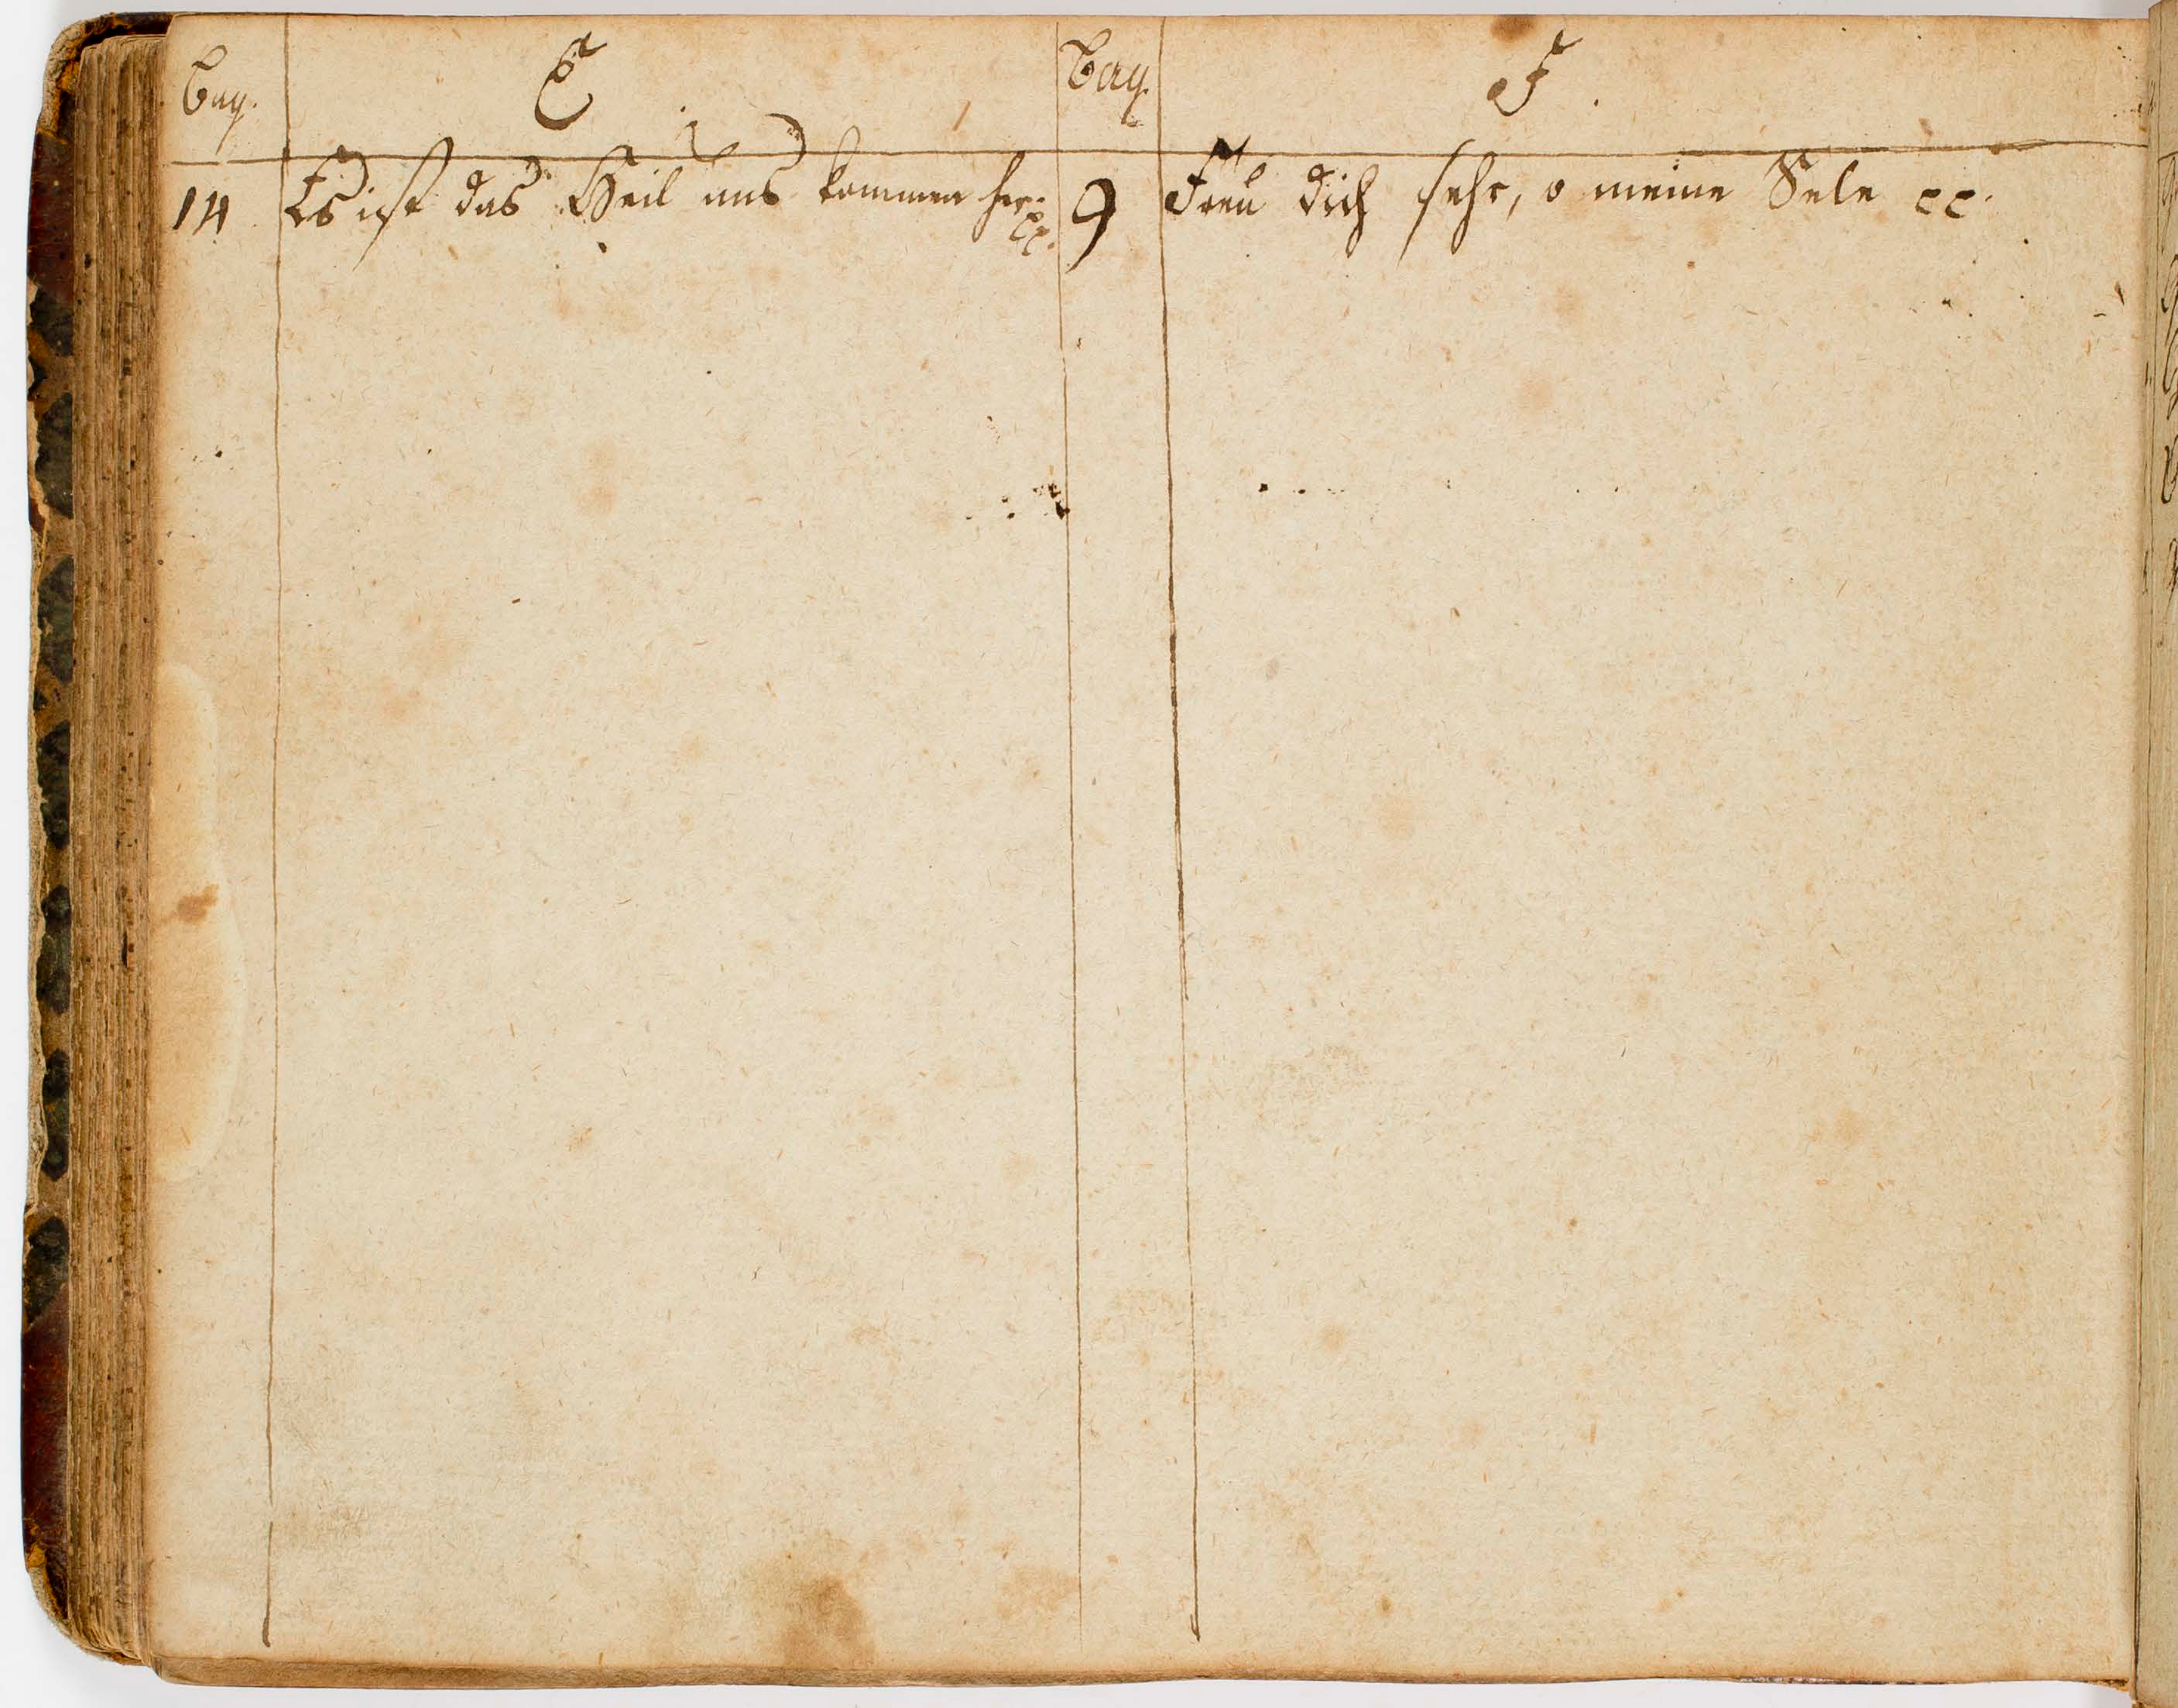 Pag. E Pag. F.
14 Es ist das Heil uns kommen her. 9 Freu dich sehr, o meine Sele